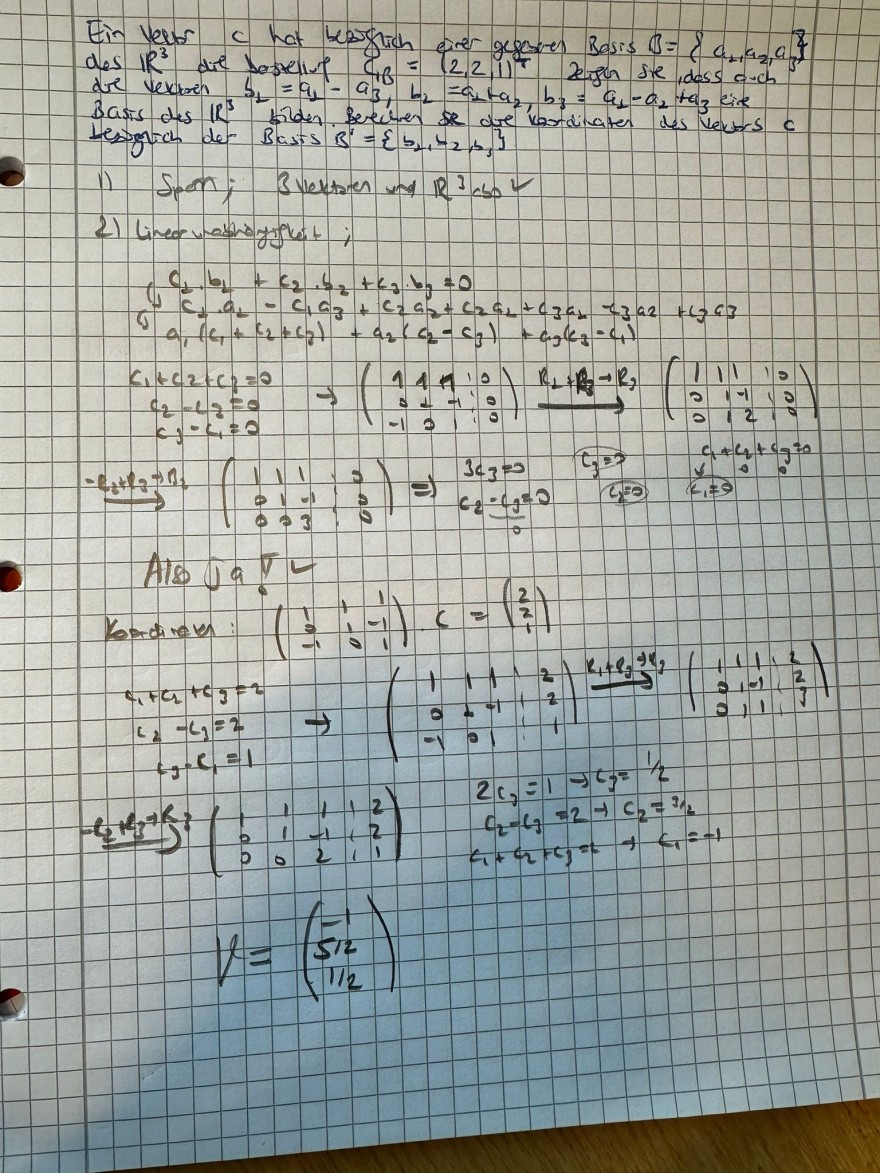 Ein Vektor c hat bezüglich einer gegebenen Basis B = { a₁, a₂, a₃ }
des ℝ³ die C_B = (2,2,1)ᵀ Zeigen sie, dass auch
die Vektoren b₁ = a₁ - a₃, b₂ = a₁ + a₂, b₃ = a₁ - a₂ + a₃ eine
Basis des ℝ³ bilden. Berechnen se die Koordinaten des Vektors c
bezüglich der Basis B' = { b₁, b₂, b₃ }
1) Span ; 3 Vektoren und ℝ³ also ✓
2) Linear unabhängigkeit ;
c₁ . b₁ + c₂ . b₂ + c₃ . b₃ = 0
c₁ . a₁ - c₁ a₃ + c₂ a₂ + c₂ a₁ + c₃ a₁ - c₃ a2 + c₃ a3
a₁ (c₁ + c₂ + c₃) + a₂ ( c₂ - c₃ ) + a₃ (c₃ - c₁)
c₁ + c₂ + c₃ = 0
c₂ - c₃ = 0
c₃ - c₁ = 0
→ ( 1 1 1 | 0
0 1 -1 | 0
-1 0 1 | 0 )
R₁ + R₃ → R₃
( 1 1 1 | 0
0 1 -1 | 0
0 1 2 | 0 )
-R₂ + R₃ → R₃
( 1 1 1 | 0
0 1 -1 | 0
0 0 3 | 0 )
⇒ 3c₃ = 0 c₃ = 0 c₁ + c₂ + c₃ = 0
c₂ - c₃ = 0 c₂ = 0 c₁ = 0
0 0 0
Also Ja ! ✓
Koordinaten : ( 1 1 1
0 1 -1
-1 0 1 ) c = ( 2
2
1 )
c₁ + c₂ + c₃ = 2
c₂ - c₃ = 2
c₃ - c₁ = 1
→ ( 1 1 1 | 2
0 1 -1 | 2
-1 0 1 | 1 )
R₁ + R₃ → R₃
( 1 1 1 | 2
0 1 -1 | 2
0 1 1 | 3 )
-R₂ + R₃ → R₃
( 1 1 1 | 2
0 1 -1 | 2
0 0 2 | 1 )
2c₃ = 1 → c₃ = 1/2
c₂ - c₃ = 2 → c₂ =
c₁ + c₂ + c₃ = 2 → c₁ = -1
V = ( -1
5/2
1/2 )